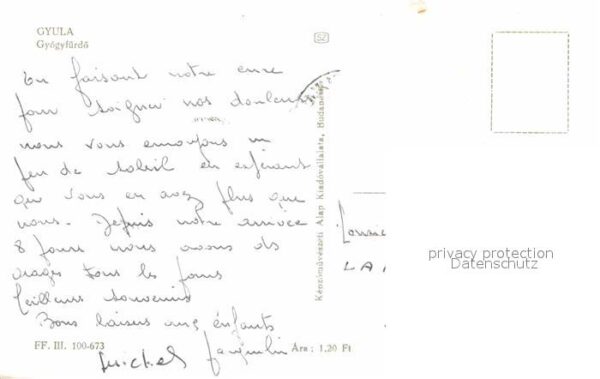 GYULA
Gyógyfürdő
SZ
En faisant notre cure
pour soigner nos douleurs
nous vous envoyons un
peu de soleil en espérant
que vous en avez plus que
nous. Depuis notre arrivée
8 jours nous avons des
orages tous les jours
Meilleurs souvenirs
Bons baisers aux enfants
Michel Jacquelin
FF. III. 100-673
Ára : 1,20 Ft
Képzőművészeti Alap Kiadóvállalata, Budapest
privacy protection
Datenschutz